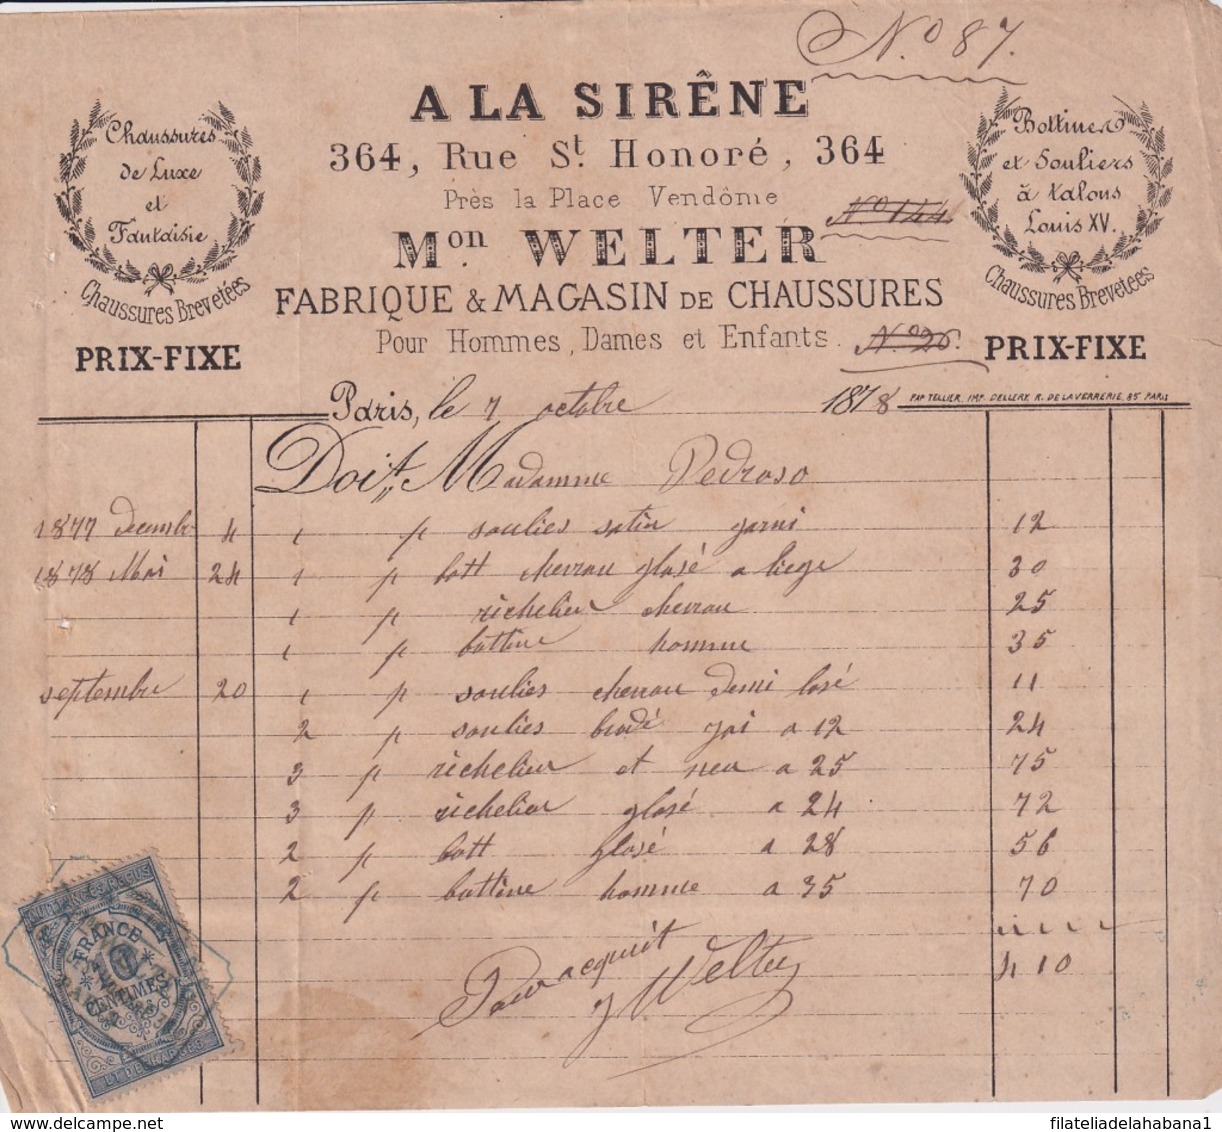 No 87.
A LA SIRÊNE
364, Rue St. Honoré, 364
Près la Place Vendôme
No 144
Mon WELTER
FABRIQUE & MAGASIN DE CHAUSSURES
Pour Hommes, Dames et Enfants.
No 26.
Chaussures
de Luxe
et
Fantaisie
Chaussures Brevetées
PRIX-FIXE
Bottines
et Souliers
à talons
Louis XV.
Chaussures Brevetées
PRIX-FIXE
Paris, le 7 octobre 1878
PAP TELLIER, IMP. DELLERY, R. DE LA VERRERIE, 85 PARIS
Doit Madamme Pedroso
1877 decembr 4 1 p soulies satin garni 12
1878 Mai 24 1 p bott chevrau glasé a liege 30
1 p richelieu chevrau 25
1 p bottine homme 35
septembre 20 1 p soulies chevrau demi 11
2 p soulies brodé jai a 12 24
3 p richelieu et a 25 75
3 p richelieu glasé a 24 72
2 p bott glasé a 28 56
2 p bottine homme a 35 70
410
Pour acquit
J Welter
QUITTANCES REÇUS
FRANCE
10
CENTIMES
ET DECHARGES
filateliadelahabana1